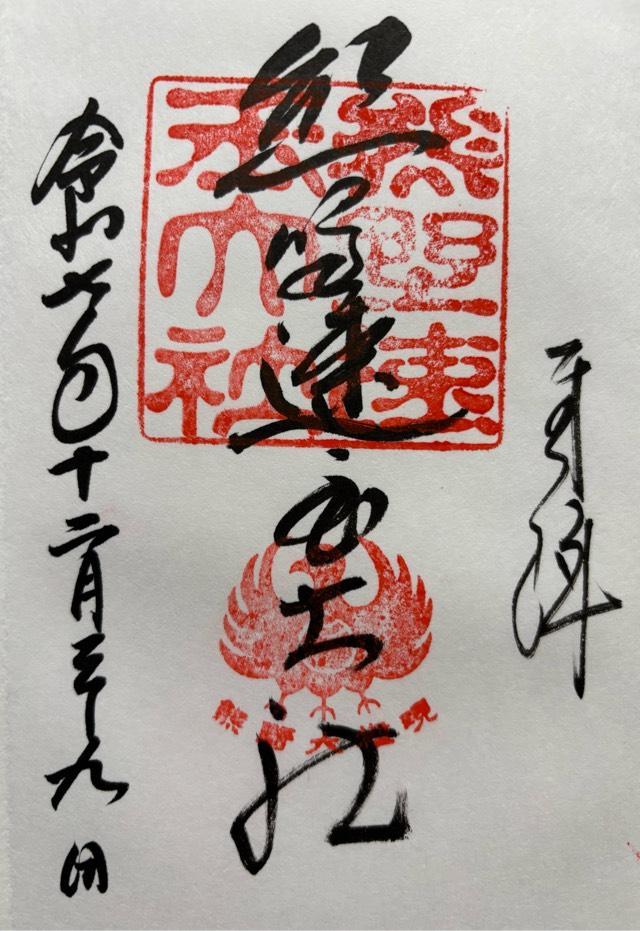 奉拝
熊野速玉大社
熊野速
玉大社
熊野大権現
令和七年十二月二十九日